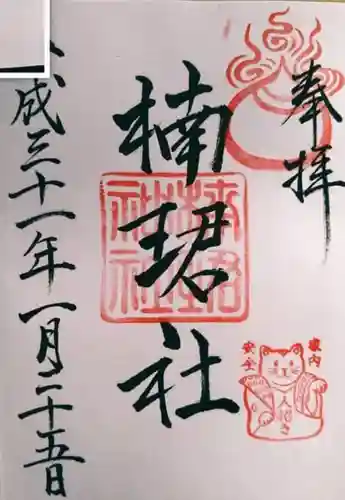 奉拝
楠珺社
平成三十一年一月二十五日
楠珺社
家内
安全
人招き